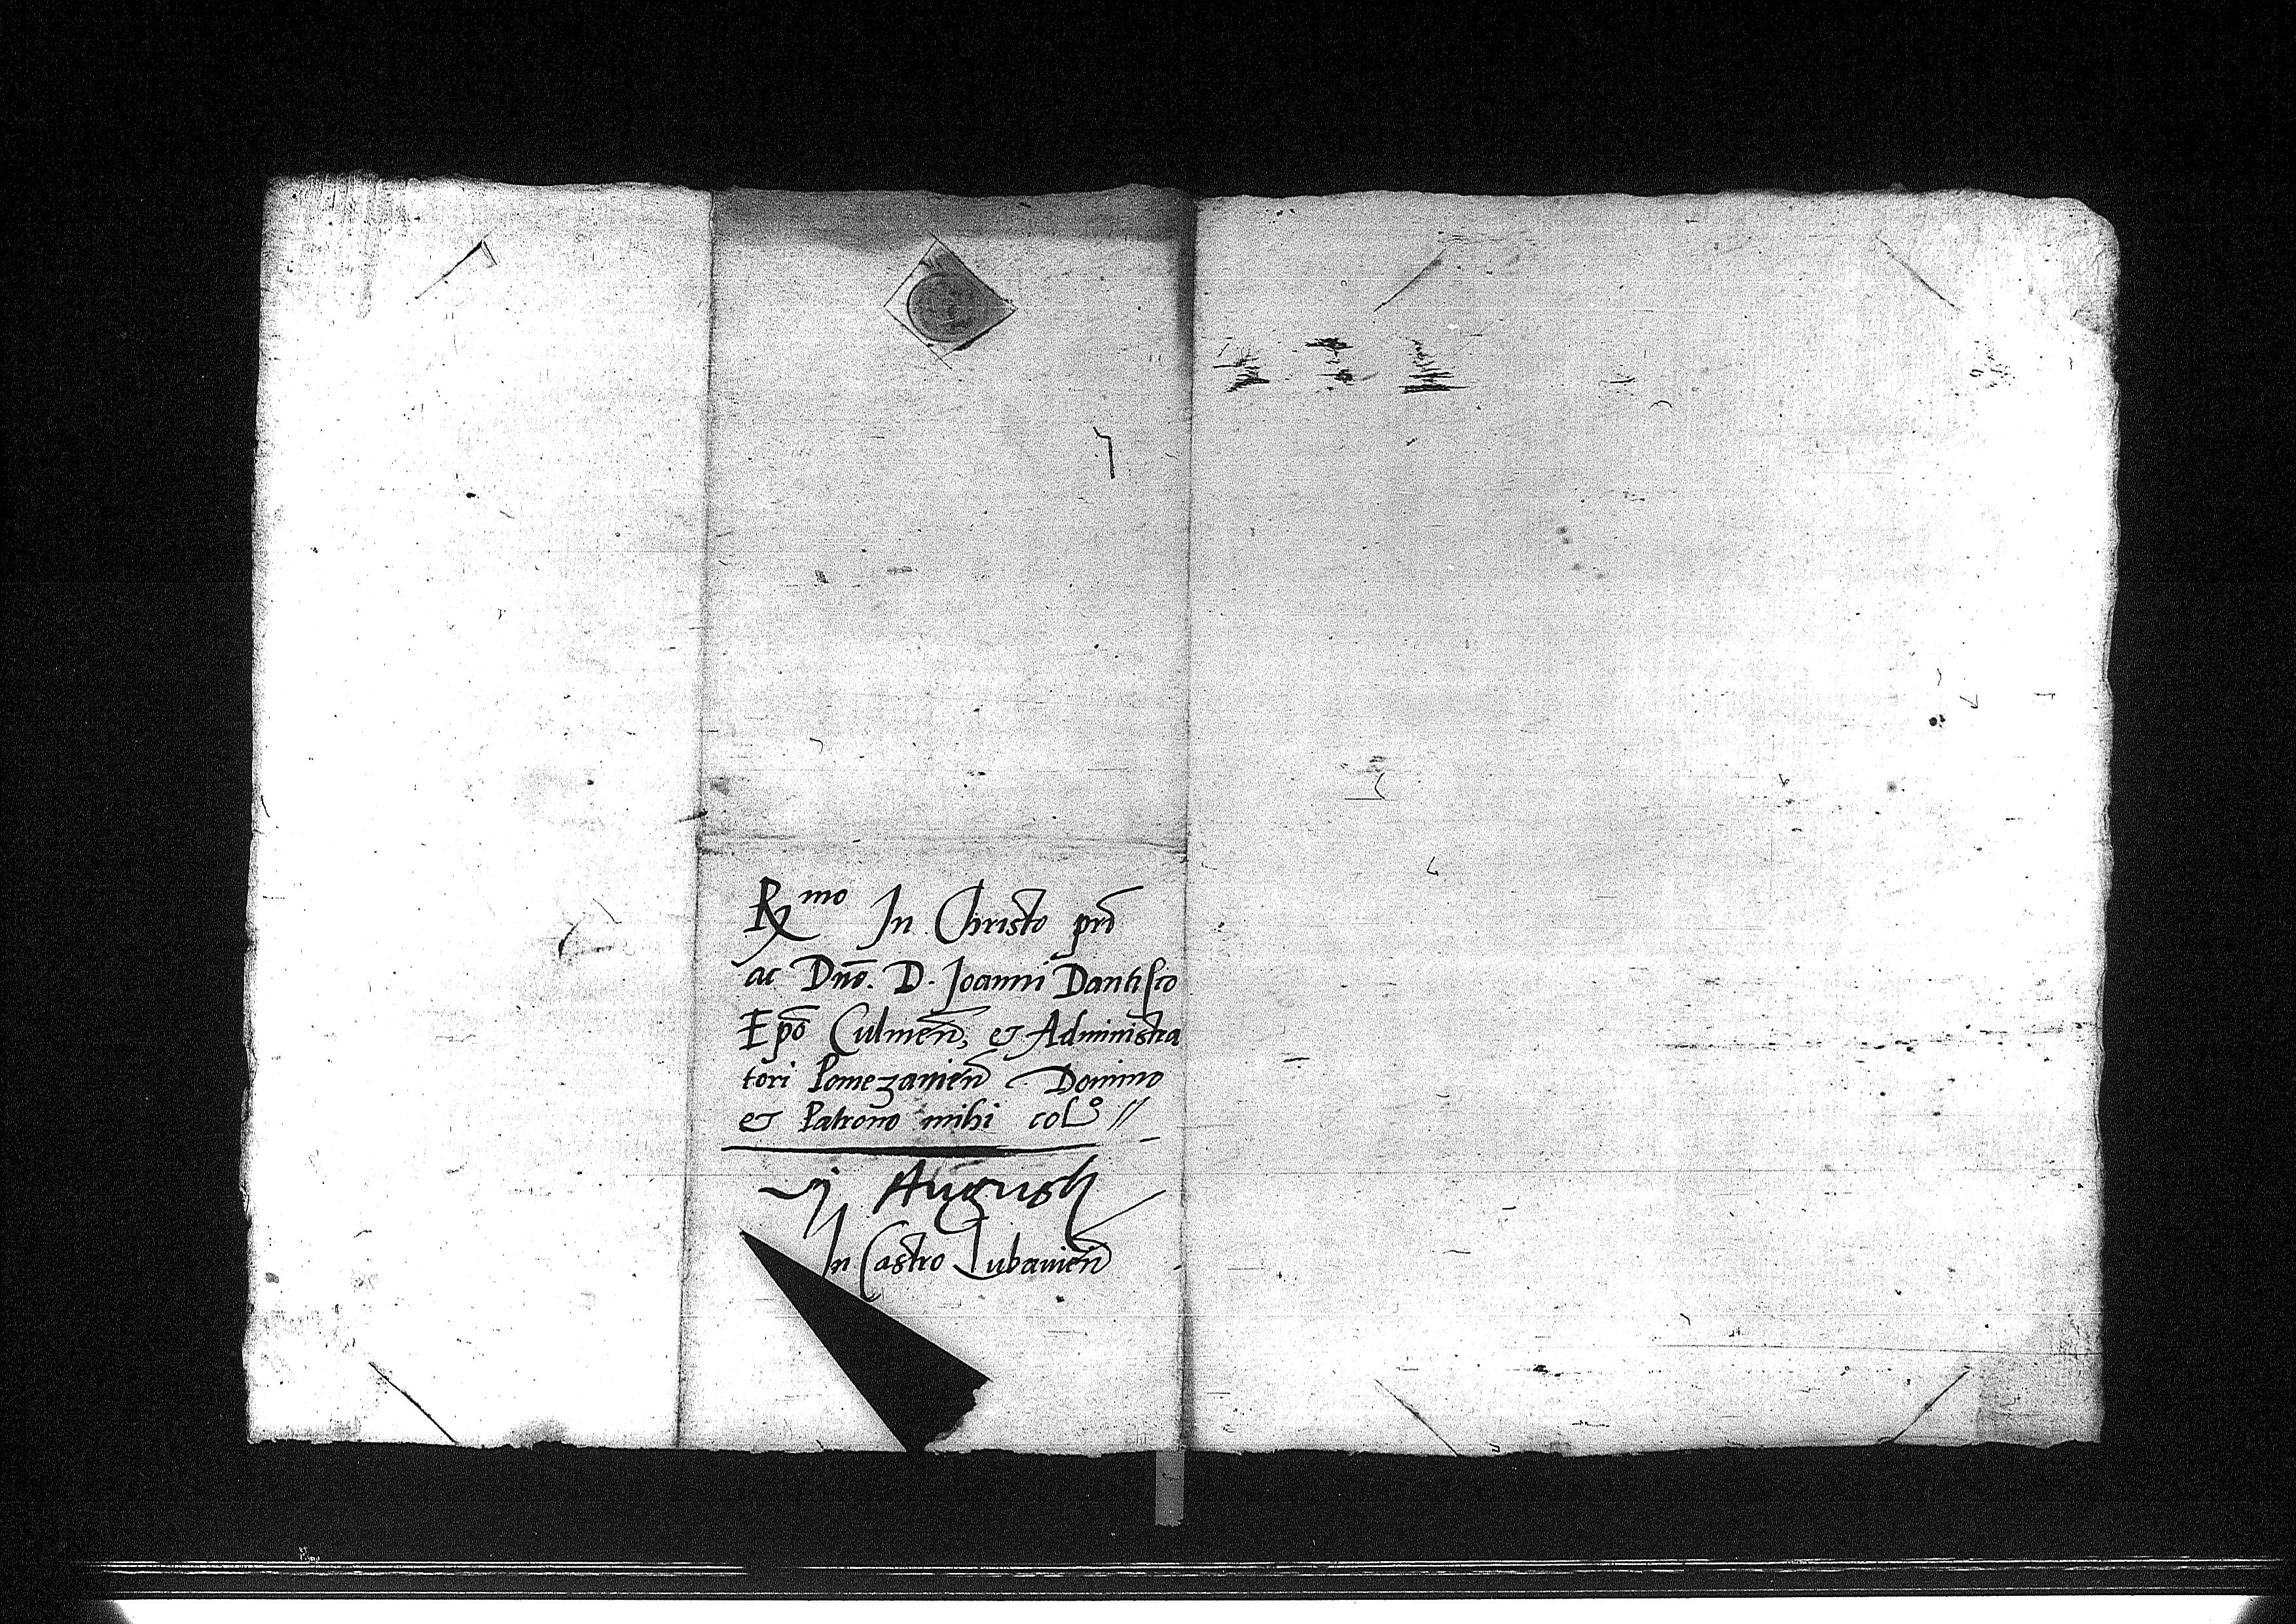 Rmo In Christo pri
ac Dno. D. Joanni Dantisco
Epo Culmen, et Administra
tori Pomezanien Domino
et Patrono mihi colo //
Augusti
In Castro Lubavien